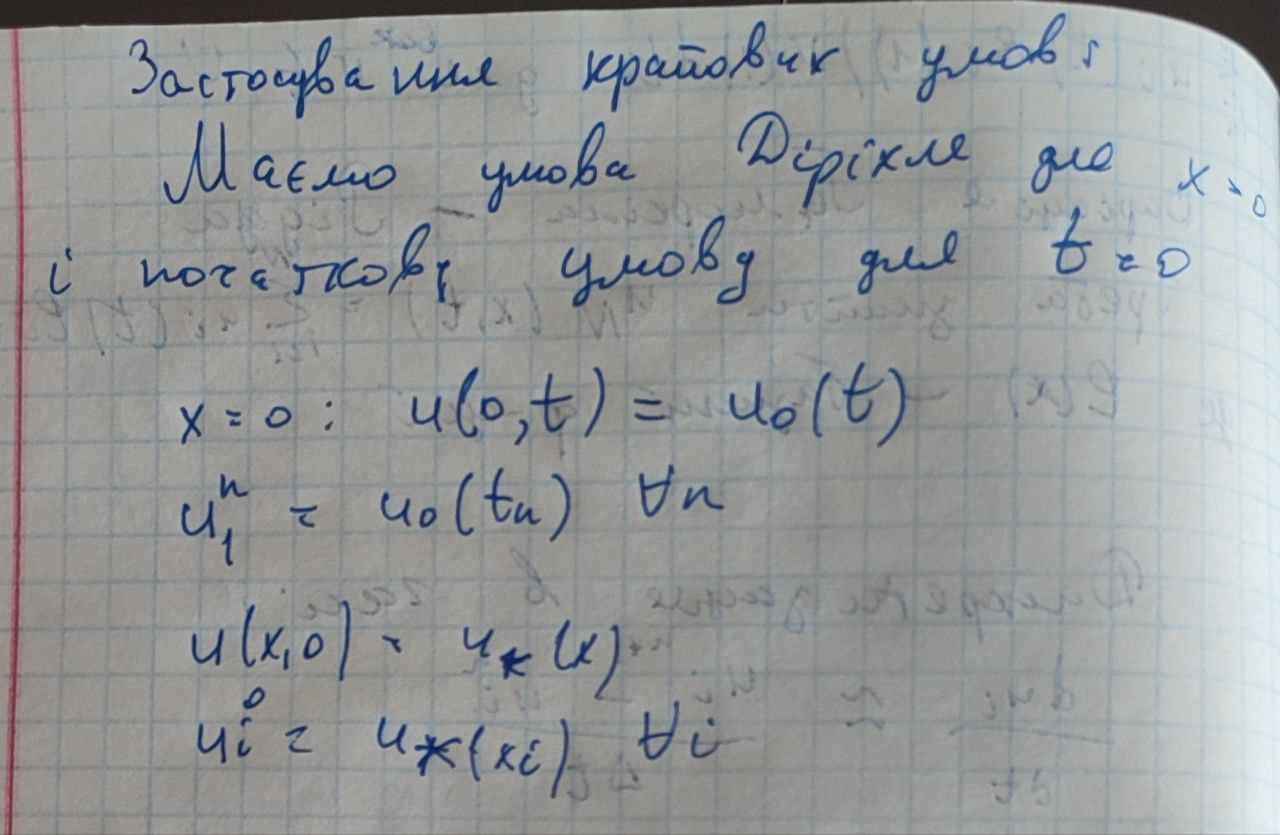 Застосування крайових умов:
Маємо умова Діріхле для x = 0
і початкову умову для t = 0
x = 0 : u(0,t) = u₀(t)
u₁ⁿ = u₀(tₙ) ∀n
u(x,0) = u_*(x)
uᵢ⁰ = u_*(xᵢ) ∀i